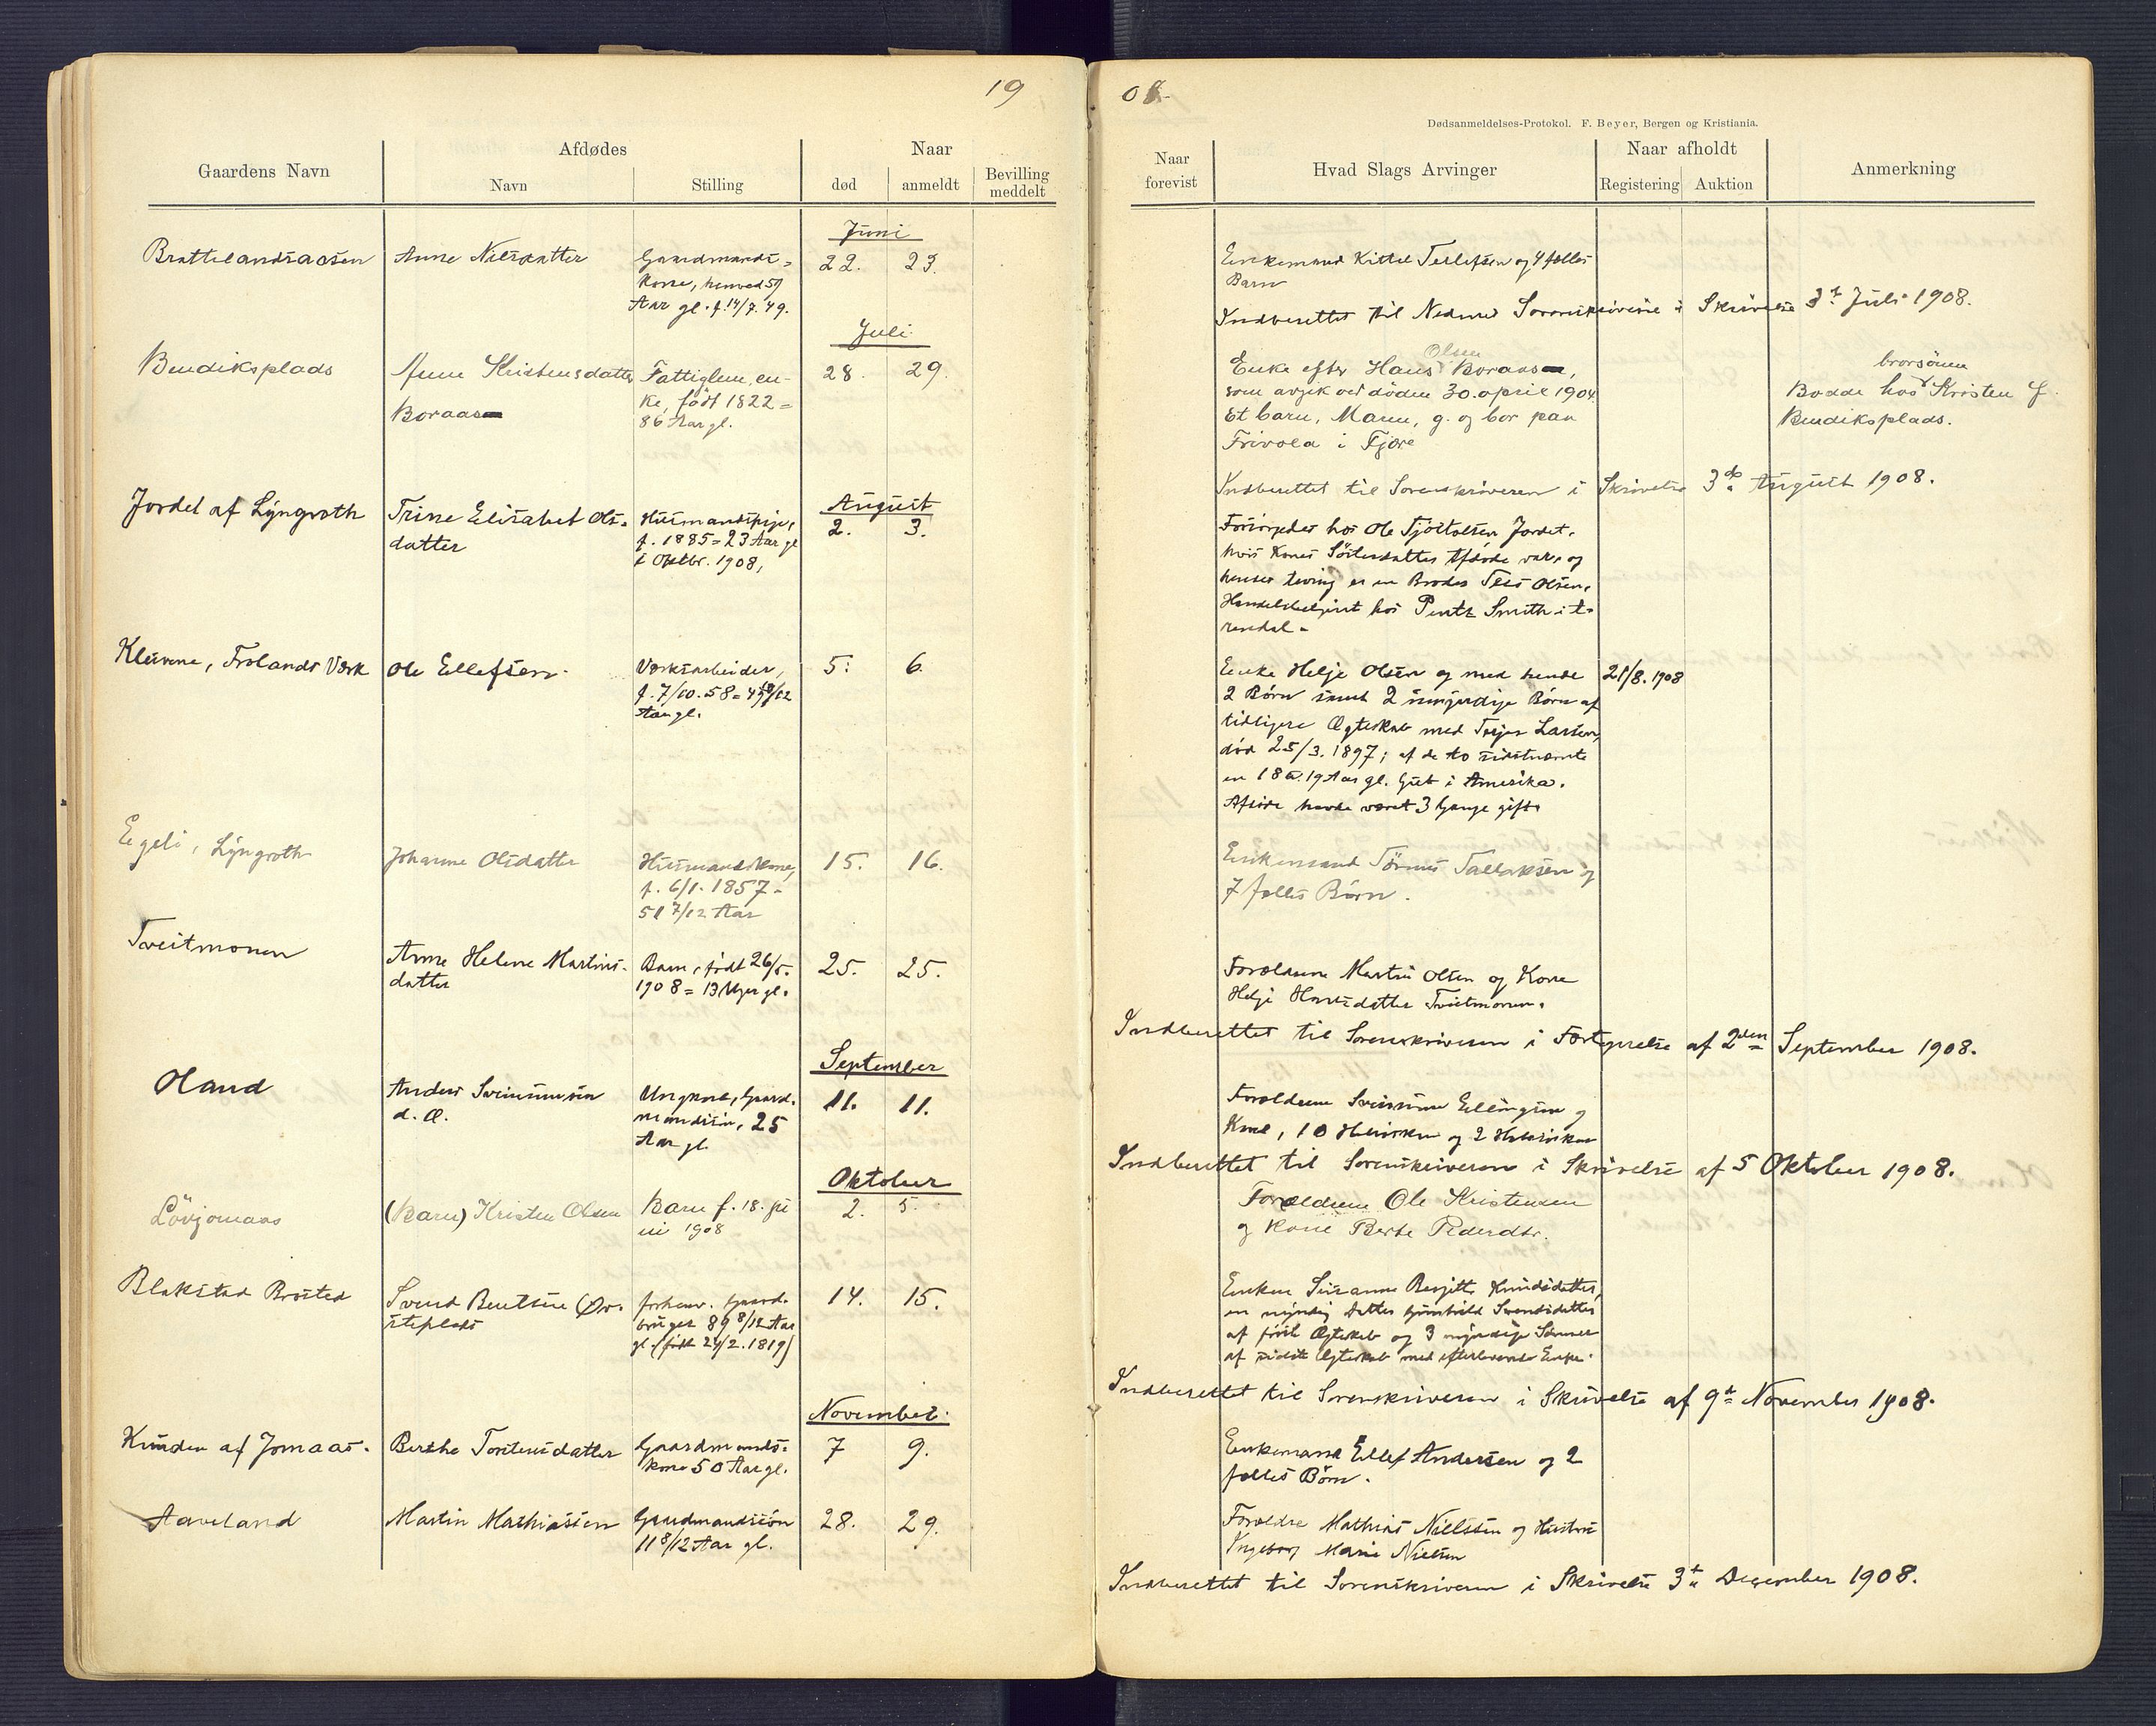 19
08.
Dødsanmeldelses-Protokol. F. Beyer, Bergen og Kristiania.
Gaardens Navn
Afdødes
Navn
Stilling
Naar
død
anmeldt
Bevilling meddelt
Naar forevist
Hvad Slags Arvinger
Naar afholdt
Registering
Auktion
Anmerkning
Juni
Brattelandsaasen
Anne Nilsdatter
Gaardmands-
kone, henved 59
Aar gl. f. 14/7.49.
22.
23.
Enkemand Kittel Tellefsen og 4 fælles
Barn
Indberettet til Nednes Sorenskriverie i Skrivelse 3d Juli 1908.
Juli
Bendiksplads
Anne Kristensdatter
Boraas
Fattiglem, en-
ke, født 1822 =
86 Aar gl.
28.
29.
Olsen
Enke efter Hans Boraas,
som avgik ved døden 30. april 1904.
Et barn, Maren, g. og bor paa
Frivola i Fjære
brorsönnen
Bodde hos Kristen J.
Bendiksplads.
Indberettet til Sorenskriveren i Skrivelse 3de August 1908.
August
Jordet af Lyngroth
Trine Elisabet Ols-
datter
Husmandspige,
f. 1885 = 23 Aar gl
i Oktbr. 1908,
2.
3.
Forsørgedes hos Ole Tjøstolsen Jordet,
hvis Kones Søsterdatter Afdøde var, og
hendes Arving er en Broder Tellef Olsen,
Handelsbetjent hos Pentz Smith i A-
rendal.
Klevene, Frolands Værk
Ole Ellefsen
Værksarbeider,
f. 7/10.58 = 49 10/12
Aar gl.
5.
6.
Enke Helje Olsen og med hende
2 Børn samt 2 umyndige Børn af
tidligere Ægteskab med Torjer Larsen,
død 25/3.1897; af de to sidstnævnte
en 18 a. 19 Aar gl. Gut i Amerika.
Afdøde havde været 3 Gange gift.
21/8.1908
Egeli, Lyngroth
Johanne Olsdatter
Husmandskone,
f. 6/1.1857 =
51 7/12 Aar
15.
16.
Enkemand Tørres Tallaksen og
7 fælles Børn.
Tveitmonen
Anne Helene Martins-
datter
Barn, født 26/5.
1908 = 13 Uger gl.
25.
25.
Forældrene Martin Olsen og Kone
Helje Hansdatter Tveitmonen.
Indberettet til Sorenskriveren i Fortegnelse af 2den September 1908.
September
Oland
Anders Sveinunsen
d. Æ.
Ungkarl, Gaard-
mandssøn, 25
Aar gl.
11.
11.
Forældrene Sveinung Ellingsen og
Kone, 10 Helsøsken og 2 Halvsøsken
Indberettet til Sorenskriveren i Skrivelse af 5 Oktober 1908.
Oktober
Løvjomaas
(Barn) Kristen Olsen
Barn f. 18. ju
ni 1908
2.
5.
Forældrene Ole Kristensen
og kone Berte Pedersdtr.
Blakstad Brøsted
Svend Bentsen Øv-
steplads
forhenv. Gaard-
bruger 89 8/12 Aar
gl. (født 24/2.1819)
14.
15.
Enken Susanne Birgitte Knudsdatter,
en myndig Datter Gunhild Svendsdatter
af første Ægteskab og 3 myndige Sønner
af sidste Ægteskab med efterlevende Enke.
Indberettet til Sorenskriveren i Skrivelse af 9de November 1908.
November.
Kunden af Jomaas.
Berthe Torstensdatter
Gaardmands-
kone 50 Aar gl.
7
9.
Enkemand Ellef Andersen og 2
fælles Børn.
Aaveland
Martin Mathiassen
Gaardmandssøn
11 8/12 Aar gl.
28.
29.
Forældre Mathias Nielssen og Hustru
Ingeborg Marie Nielsen
Indberettet til Sorenskriveren i Skrivelse 3de December 1908.